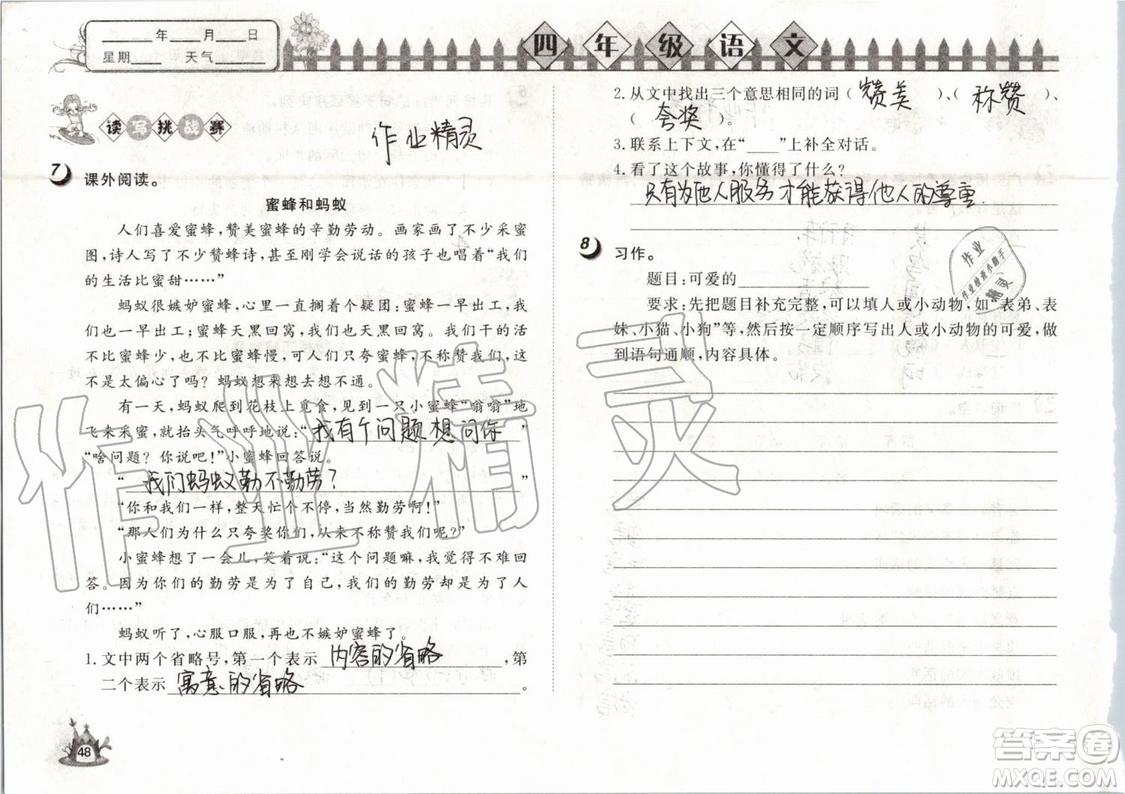 ____年____月____日
星期____ 天气____
四年级语文
读写挑战赛
作业精灵
7 课外阅读。
蜜蜂和蚂蚁
人们喜爱蜜蜂，赞美蜜蜂的辛勤劳动。画家画了不少采蜜
图，诗人写了不少赞蜂诗，甚至刚学会说话的孩子也唱着“我们
的生活比蜜甜……”
蚂蚁很嫉妒蜜蜂，心里一直搁着个疑团：蜜蜂一早出工，我
们也是一早出工；蜜蜂天黑回窝，我们也天黑回窝；我们工作
不比蜜蜂少，也不比蜜蜂慢，可人们只喜欢蜜蜂不喜欢我们，不
是太偏心了吗？蚂蚁想来想去想不通。
有一天，蚂蚁爬到花枝上觅食，见到一只小蜜蜂“嗡嗡”地
飞来采蜜，就抬头气呼呼地说：“我有个问题想问你”
“啥问题？你说吧！”小蜜蜂回答说。
“我们蚂蚁勤不勤劳？”
“你和我们一样，整天忙个不停，当然勤劳啊！”
“那人们为什么只夸奖你们，从来不称赞我们呢？”
小蜜蜂想了一会儿，笑着说：“这个问题嘛，我觉得不难回
答。因为你们的勤劳是为了自己，我们的勤劳却是为了人
们……”
蚂蚁听了，心服口服，再也不嫉妒蜜蜂了。
1.文中两个省略号，第一个表示内容的省略，第
二个表示寓意的省略。
48
2.从文中找出三个意思相同的词（赞美）、（称赞）、
（夸奖）。
3.联系上下文，在“____”上补全对话。
4.看了这个故事，你懂得了什么？
只有为他人服务才能获得他人的尊重
8 习作。
题目：可爱的________
要求：先把题目补充完整，可以填人或小动物，如“表弟、表
妹、小猫、小狗”等，然后按一定顺序写出人或小动物的可爱，做
到语句通顺，内容具体。
作业
精灵
作业精灵
答案圈
MXQE.COM